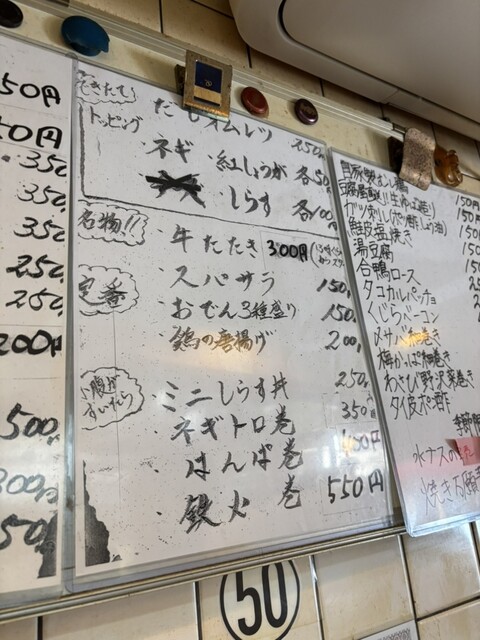 50円
50円
350
350
350
250
250
200円
500
300円
50
できたて!
だしオムレツ 250
トッピング
ネギ・紅しょうが 各50
しらす 各100
名物!!
牛たたき 300円
定番
スパサラ 150
おでん3種盛り 150
鶏の唐揚げ 200
ミニしらす丼 250
ネギトロ巻 350
はんぱ巻 400
鉄火巻 550円
150円
150
150
鮭皮塩焼き
湯豆腐
合鴨ロース
タコカルパッチョ
くじらベーコン
梅かっぱ細巻き
わさび野沢菜巻き
タイ皮ポン酢
水ナスの
焼き
50